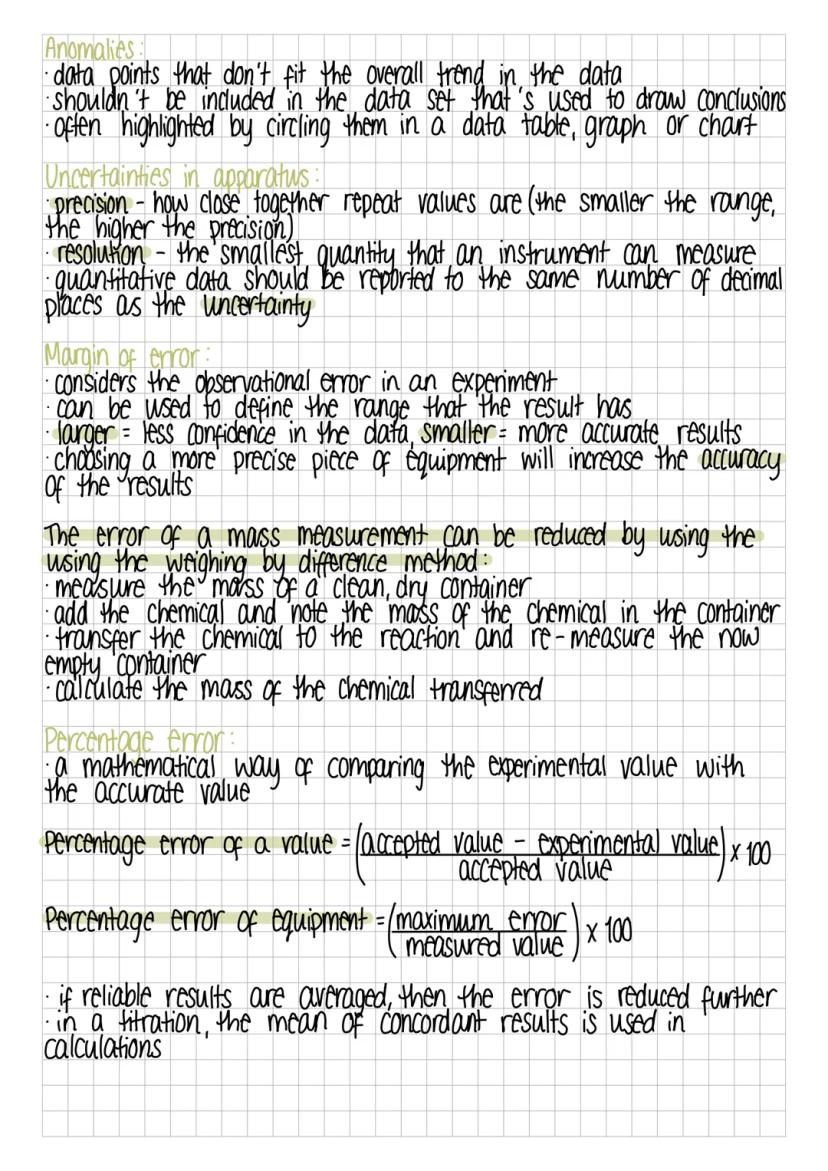 Anomalies:
· data points that don't fit the overall trend in the data
· shouldn't be included in the data set that's used to draw conclusions
· often highlighted by circling them in a data table, graph or chart
Uncertainties in apparatus:
· precision - how close together repeat values are (the smaller the range,
the higher the precision)
· resolution - the smallest quantity that an instrument can measure
· quantitative data should be reported to the same number of decimal
places as the uncertainty
Margin of error:
· considers the observational error in an experiment
· can be used to define the range that the result has
· larger = less confidence in the data, smaller = more accurate results
· choosing a more precise piece of equipment will increase the accuracy
of the results
The error of a mass measurement can be reduced by using the
using the weighing by difference method:
· measure the mass of a clean, dry container
· add the chemical and note the mass of the chemical in the container
· transfer the chemical to the reaction and re-measure the now
empty container
· calculate the mass of the chemical transferred
Percentage error:
· a mathematical way of comparing the experimental value with
the accurate value
Percentage error of a value = (accepted value - experimental value / accepted value) x 100
Percentage error of equipment = (maximum error / measured value) x 100
· if reliable results are averaged, then the error is reduced further
· in a titration, the mean of concordant results is used in
calculations